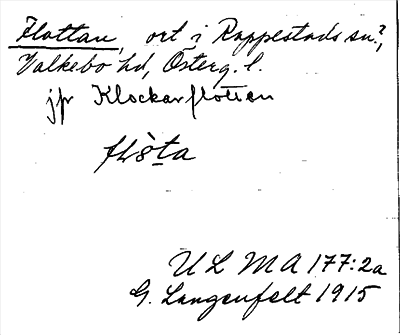 Flottan, ort i Rappestads sn?,
Valkebo hd, Österg. l.
jfr Klockarflottan
ULMA 177:2a
G. Langenfelt 1915